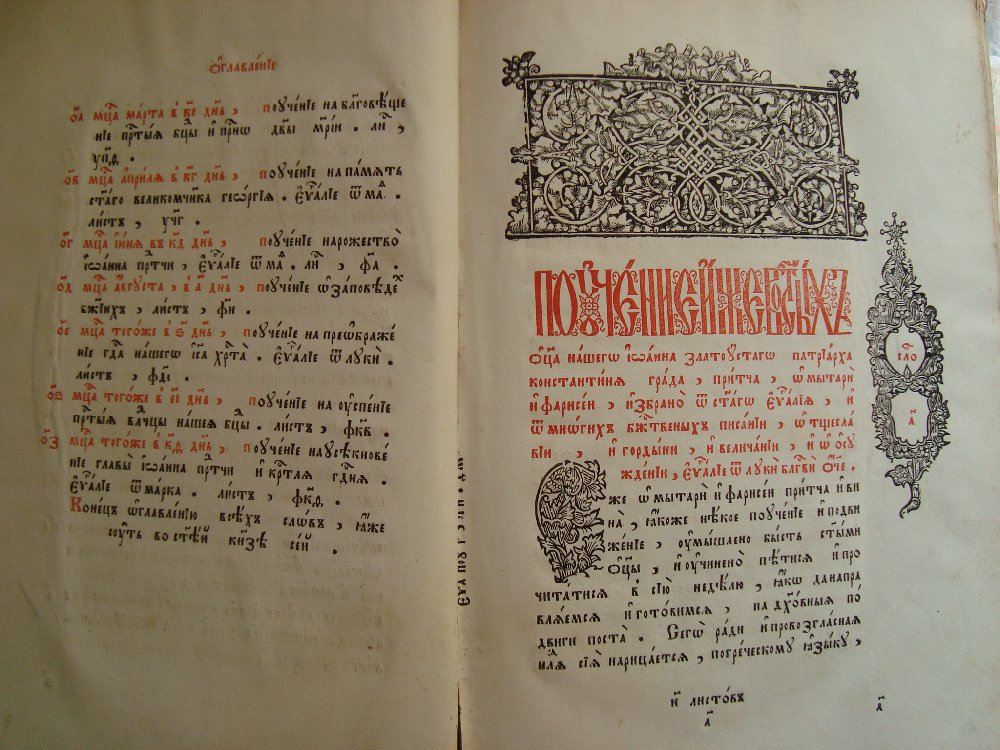 Ѻ҆главле́нїе
о҃а мц҃а марта в к҃е дн҃ь, поуче́нїе на бл҃гове́ще
нїе прⷭ҇тыѧ бц҃ы и҆ прⷭ҇нѡ дв҃ы мр҃їи. лиⷭ҇,
уп҃д.
о҃в мц҃а а҆прилѧ в к҃г дн҃ь, поуче́нїе на па́мѧть
ст҃а́го великомчн҃ика гео́ргїѧ. є҆ѵⷢ҇лїе ѿ маⷴ.
листъ, уч҃г.
о҃г мц҃а і҆ю́нѧ въ к҃д дн҃ь, поуче́нїе на рожество̀
і҆ѡа́нна прⷣтчи, є҆ѵⷢ҇лїе ѿ маⷴ. лиⷭ҇, ф҃а.
о҃д мц҃а а҆́ѵгуста, в а҃ дн҃ь, поуче́нїе ѡ҆ за́повѣдеⷯ
бж҃їихъ, листъ, ф҃и.
о҃е мц҃а того́же в ѕ҃ дн҃ь, поуче́нїе на преѡбраже́
нїе гдⷭ҇а на́шегѡ і҆с҃а хрⷭ҇та̀. є҆ѵⷢ҇лїе ѿ луки̂.
листъ, фд҃і.
о҃ѕ мц҃а того́же в е҃і дн҃ь, поуче́нїе на оу҆спе́нїе
прⷭ҇тыѧ влⷣцы на́шеѧ бц҃ы. листъ, фк҃в.
о҃з мц҃а того́же в к҃д дн҃ь, поуче́нїе на усѣ́кнове
нїе главы̀ і҆ѡа́нна прⷣтчи и҆ крⷭ҇тлѧ гдⷭ҇нѧ.
є҆ѵⷢ҇лїе ѿ марка. листъ, фк҃д.
Коне́цъ ѡ҆главле́нїю всѣ́хъ сло́въ, ꙗ҆́же
соуть во ст҃ѣ́й кни́зѣ се́й.
Поуче́нїе и҆́же во ст҃ы́хъ
ѻ҆ц҃а̀ на́шегѡ і҆ѡа́нна златоу́стагѡ патрїа́рха
константи́нѧ гра́да, при́тча, ѡ҆ мытарѝ
и҆ фарисе́и, и҆збрано̀ ѿ ст҃а́гѡ є҆ѵⷢ҇лїѧ, и҆
ѿ мно́гихъ бжⷭ҇твеныхъ писа́нїи, ѡ҆ тщесла́
вїи, и҆ горды́ни, и҆ велича́нїи, и҆ ѡ҆ ѻ҆су
жде́нїи, є҆ѵⷢ҇лїе ѿ луки̂ бл҃гви̂ ѻ҆́ч҃е.
Є҆́же ѡ҆ мытарѝ и҆ фарисе́и при́тча и҆ ви
на̀, ꙗ҆́коже нѣ́кое поуче́нїе и҆ подви
же́нїе, оу҆мы́шлено бы́сть ст҃ы́ми
ѻ҆ц҃ы̀, и҆ оу҆чинено̀ пѣ́тисѧ и҆ про
чита́тисѧ в сїю̀ недѣ́лю, ꙗ҆́кѡ да напра
влѧ́емсѧ и҆ гото́вимсѧ, на дх҃о́вныѧ по́
двиги поста̀. Сегѡ̀ ра́ди и҆ провозгла́снаѧ
недⷧ҇ѧ сїѧ̀ нарица́етсѧ, погре́ческому ꙗ҆зы́ку,
сло́
а҃
и҃ листо́въ
а҃
а҃